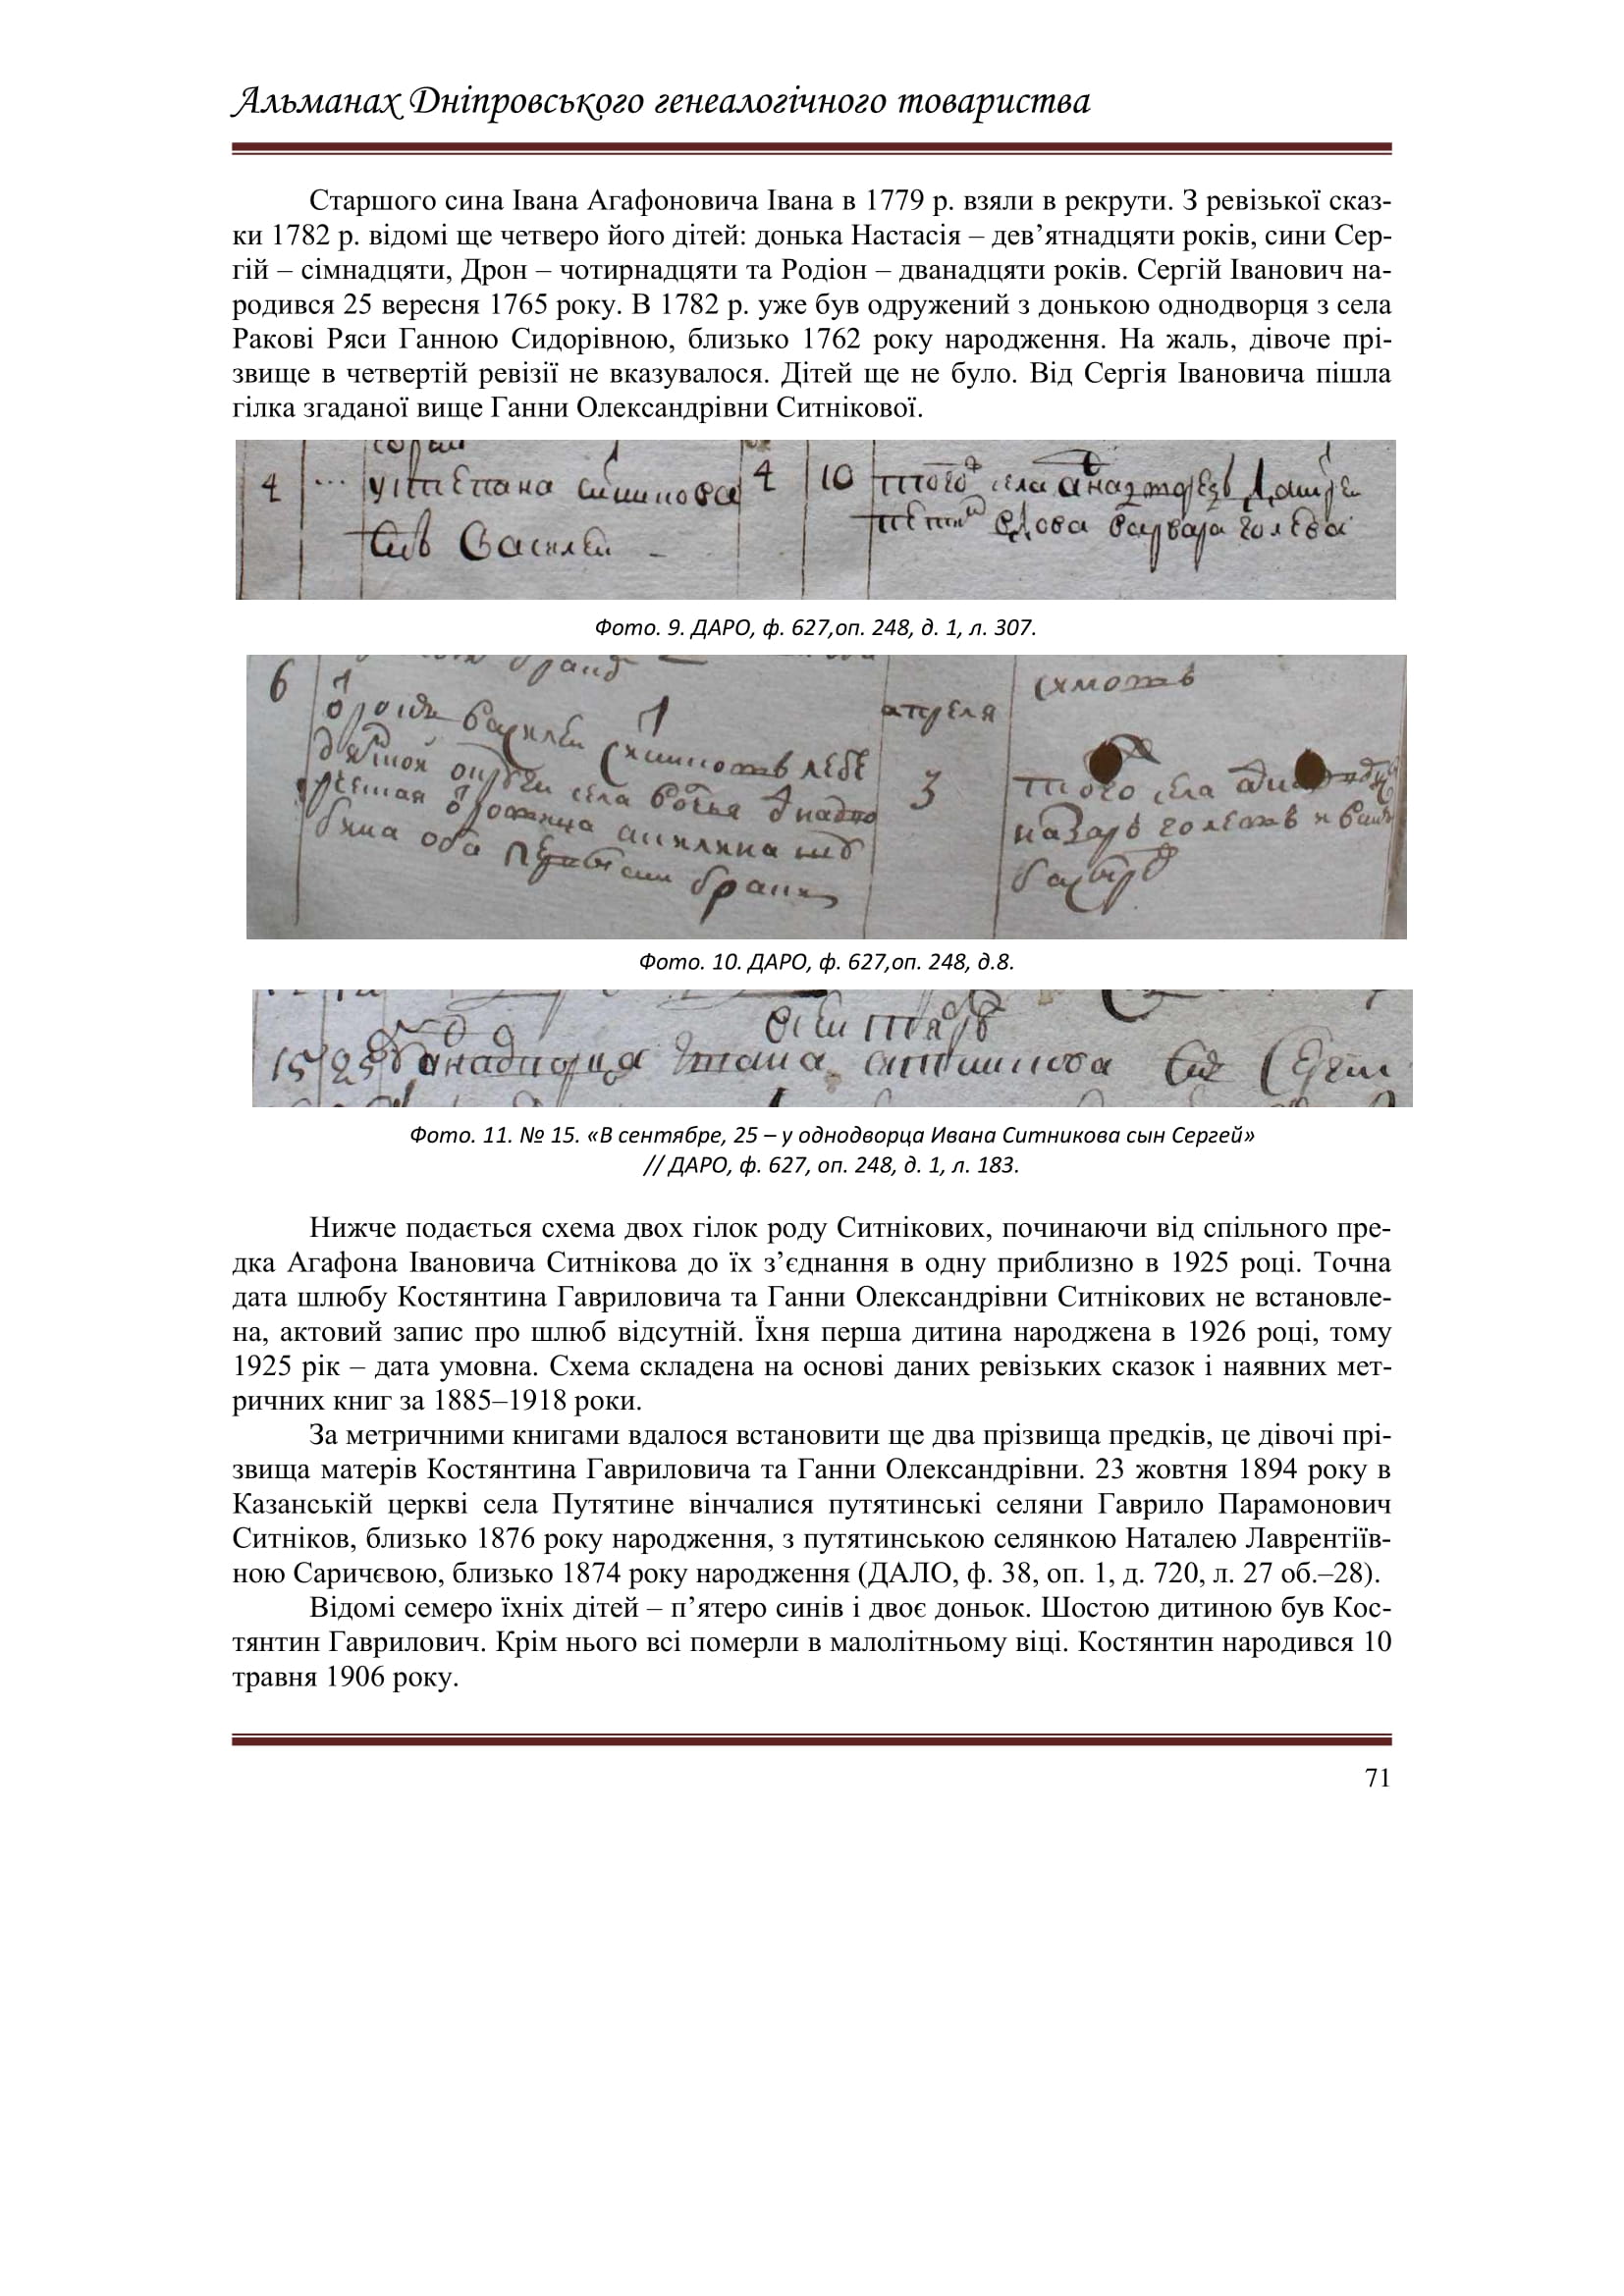 Альманах Дніпровського генеалогічного товариства
Старшого сина Івана Агафоновича Івана в 1779 р. взяли в рекрути. З ревізької сказ-
ки 1782 р. відомі ще четверо його дітей: донька Настасія – дев’ятнадцяти років, сини Сер-
гій – сімнадцяти, Дрон – чотирнадцяти та Родіон – дванадцяти років. Сергій Іванович на-
родився 25 вересня 1765 року. В 1782 р. уже був одружений з донькою однодворця з села
Ракові Ряси Ганною Сидорівною, близько 1762 року народження. На жаль, дівоче прі-
звище в четвертій ревізії не вказувалося. Дітей ще не було. Від Сергія Івановича пішла
гілка згаданої вище Ганни Олександрівни Ситнікової.
4 ... 4 10 того села
вдова варвара голева
Фото. 9. ДАРО, ф. 627,оп. 248, д. 1, л. 307.
6
апреля
3 того села
Фото. 10. ДАРО, ф. 627,оп. 248, д.8.
15 25
Фото. 11. № 15. «В сентябре, 25 – у однодворца Ивана Ситникова сын Сергей»
// ДАРО, ф. 627, оп. 248, д. 1, л. 183.
Нижче подається схема двох гілок роду Ситнікових, починаючи від спільного пре-
дка Агафона Івановича Ситнікова до їх з’єднання в одну приблизно в 1925 році. Точна
дата шлюбу Костянтина Гавриловича та Ганни Олександрівни Ситнікових не встановле-
на, актовий запис про шлюб відсутній. Їхня перша дитина народжена в 1926 році, тому
1925 рік – дата умовна. Схема складена на основі даних ревізьких сказок і наявних мет-
ричних книг за 1885–1918 роки.
За метричними книгами вдалося встановити ще два прізвища предків, це дівочі прі-
звища матерів Костянтина Гавриловича та Ганни Олександрівни. 23 жовтня 1894 року в
Казанській церкві села Путятине вінчалися путятинські селяни Гаврило Парамонович
Ситніков, близько 1876 року народження, з путятинською селянкою Наталею Лаврентіїв-
ною Саричєвою, близько 1874 року народження (ДАЛО, ф. 38, оп. 1, д. 720, л. 27 об.–28).
Відомі семеро їхніх дітей – п’ятеро синів і двоє доньок. Шостою дитиною був Кос-
тянтин Гаврилович. Крім нього всі померли в малолітньому віці. Костянтин народився 10
травня 1906 року.
71